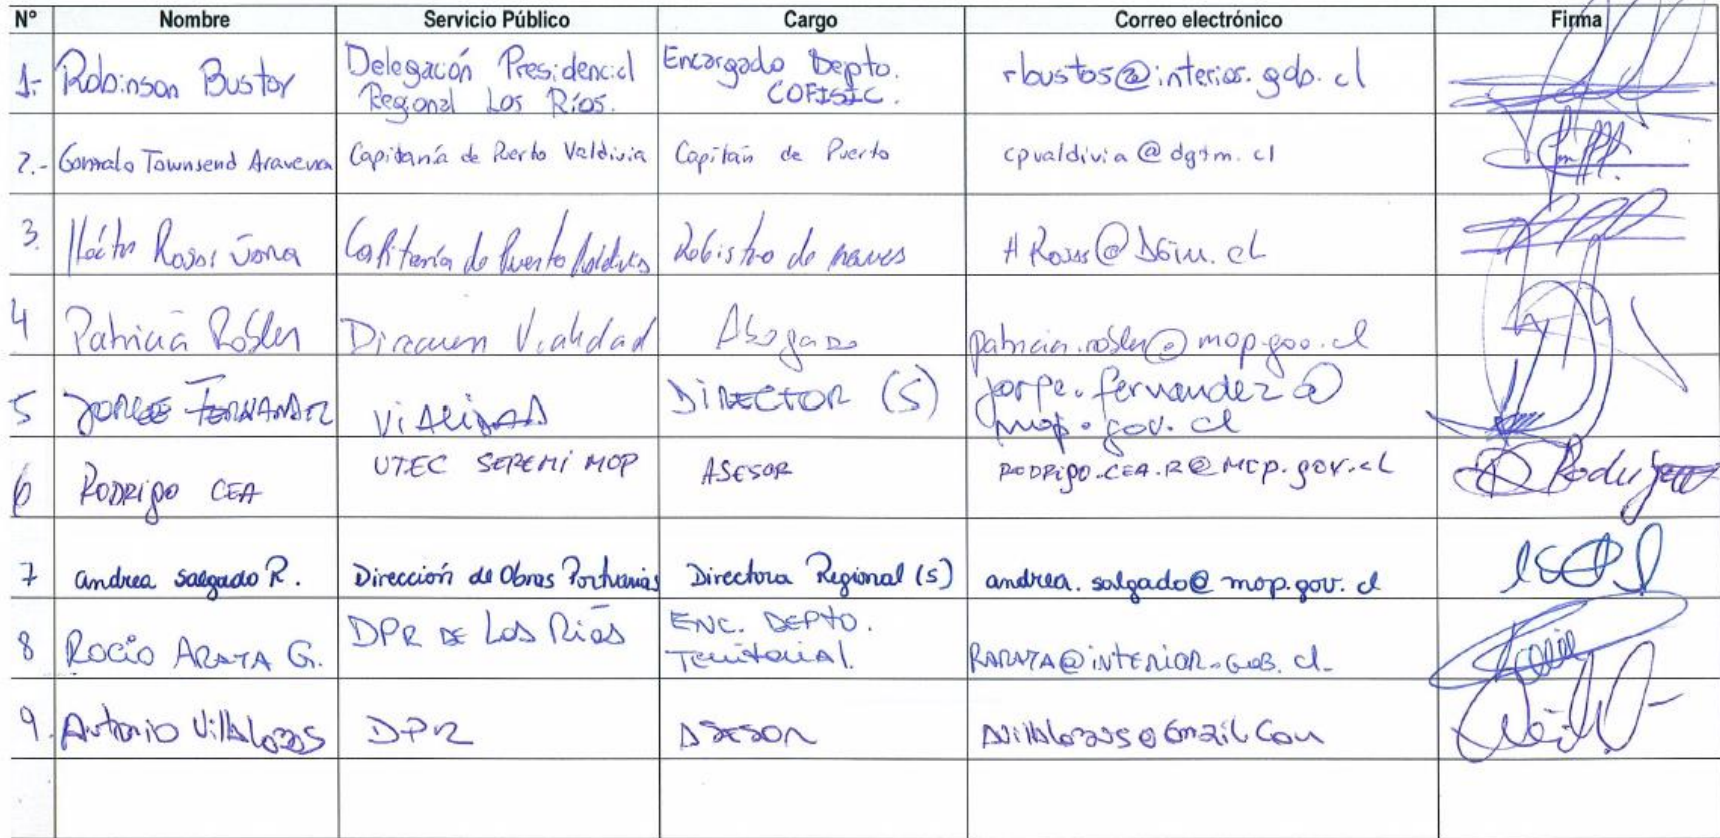 N° Nombre Servicio Público Cargo Correo electrónico Firma
1- Robinson Bustos Delegación Presidencial Encargado Depto. rbustos@interior.gob.cl
Regional Los Ríos. COFISIC.
2.- Gonzalo Townsend Aravena Capitanía de Puerto Valdivia Capitán de Puerto cpvaldivia@dgtm.cl
3. Héctor Rojas Capitanía de Puerto Valdivia Registro de naves HRojas@Dgtm.cl
4 Patricia Robles Direccion Vialidad Abogado patricia.robles@mop.gov.cl
5 JORGE FERNANDEZ ViALidAD DIRECTOR (S) jorge.fernandez@
mop.gov.cl
6 RODRIGO CEA UTEC SEREMI MOP ASESOR RODRIGO.CEA.R@MOP.gov.cl Rodrigo
7 andrea salgado R. Dirección de Obras Portuarias Directora Regional (s) andrea.salgado@mop.gov.cl
8 ROCÍO ARATA G. DPR DE LOS RÍOS ENC. DEPTO. RARATA@INTERIOR.GOB.cl-
Territorial.
9. Antonio Villalobos DPR ASESOR AVillalobos@Gmail.Com